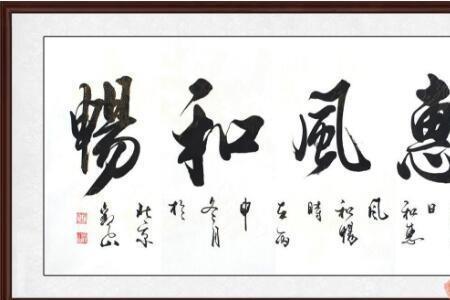 惠風和暢
日和惠
風
和暢
時
在丙
申
冬月
於
北京